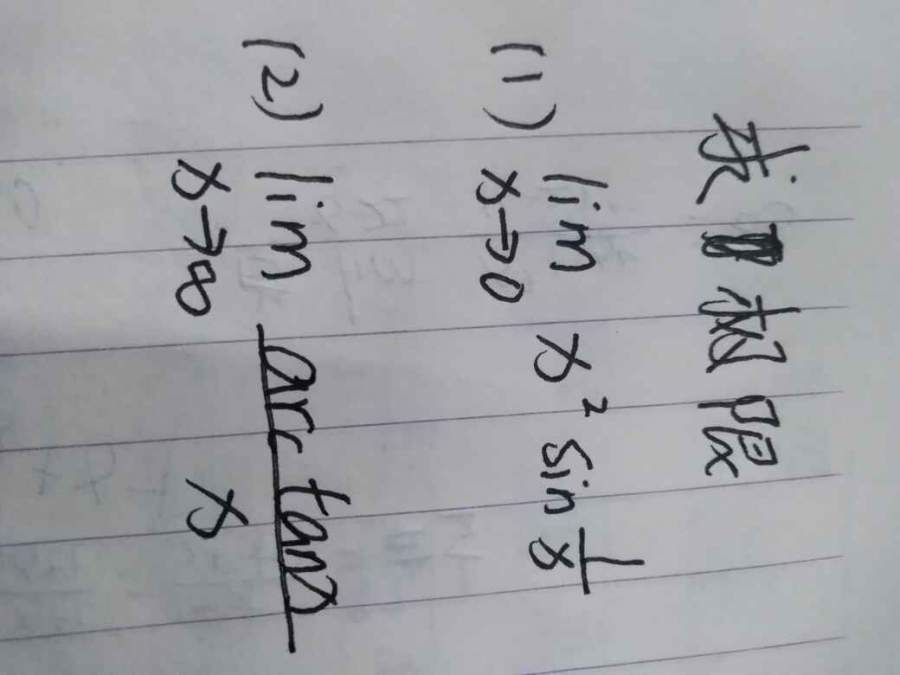 求极限
(1) lim x→0 x² sin 1/x
(2) lim x→∞ arc tanx / x